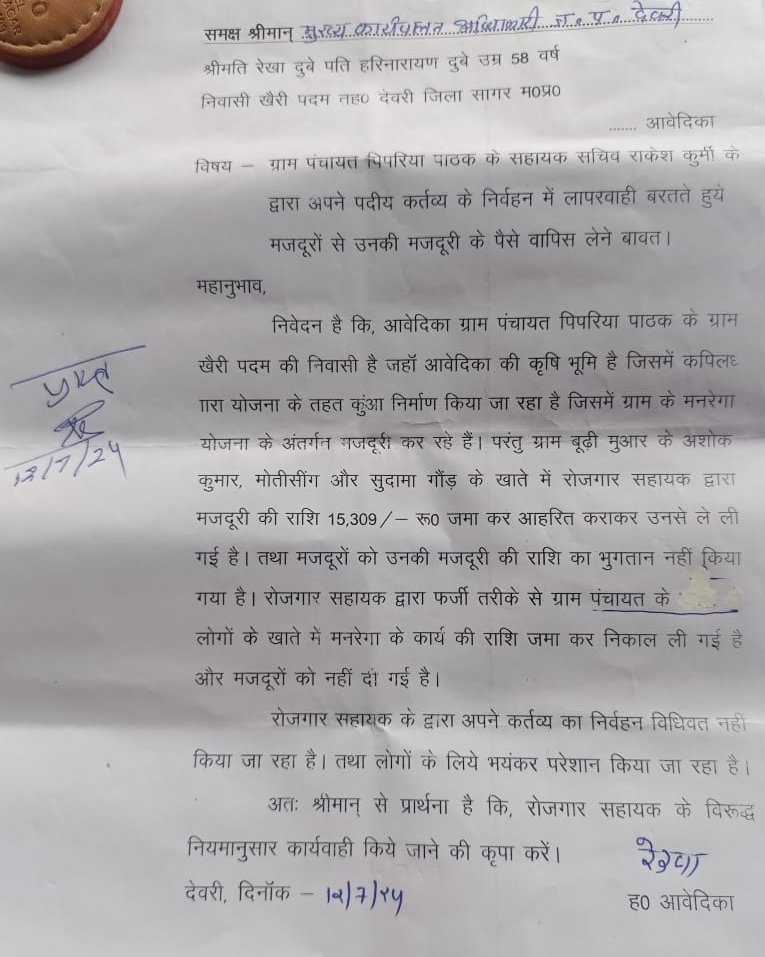 समक्ष श्रीमान् मुख्य कार्यपालन अधिकारी ज. प. देवरी
श्रीमति रेखा दुबे पति हरिनारायण दुबे उम्र 58 वर्ष
निवासी खैरी पदम तह0 देवरी जिला सागर म0प्र0
....... आवेदिका
विषय – ग्राम पंचायत पिपरिया पाठक के सहायक सचिव राकेश कुर्मी के
द्वारा अपने पदीय कर्तव्य के निर्वहन में लापरवाही बरतते हुये
मजदूरों से उनकी मजदूरी के पैसे वापिस लेने बावत।
महानुभाव,
निवेदन है कि, आवेदिका ग्राम पंचायत पिपरिया पाठक के ग्राम
खैरी पदम की निवासी है जहॉ आवेदिका की कृषि भूमि है जिसमें कपिलध
ारा योजना के तहत कुंआ निर्माण किया जा रहा है जिसमें ग्राम के मनरेगा
योजना के अंतर्गन मजदूरी कर रहे हैं। परंतु ग्राम बूढ़ी मुआर के अशोक
कुमार, मोतीसींग और सुदामा गौंड़ के खाते में रोजगार सहायक द्वारा
मजदूरी की राशि 15,309/– रू0 जमा कर आहरित कराकर उनसे ले ली
गई है। तथा मजदूरों को उनकी मजदूरी की राशि का भुगतान नहीं किया
गया है। रोजगार सहायक द्वारा फर्जी तरीके से ग्राम पंचायत के
लोगों के खाते में मनरेगा के कार्य की राशि जमा कर निकाल ली गई है
और मजदूरों को नहीं दी गई है।
रोजगार सहायक के द्वारा अपने कर्तव्य का निर्वहन विधिवत नहीं
किया जा रहा है। तथा लोगों के लिये भयंकर परेशान किया जा रहा है।
अतः श्रीमान् से प्रार्थना है कि, रोजगार सहायक के विरूद्ध
नियमानुसार कार्यवाही किये जाने की कृपा करें।
देवरी, दिनॉक – 12/7/24
रेखा
ह0 आवेदिका
प्राप्त
12/7/24